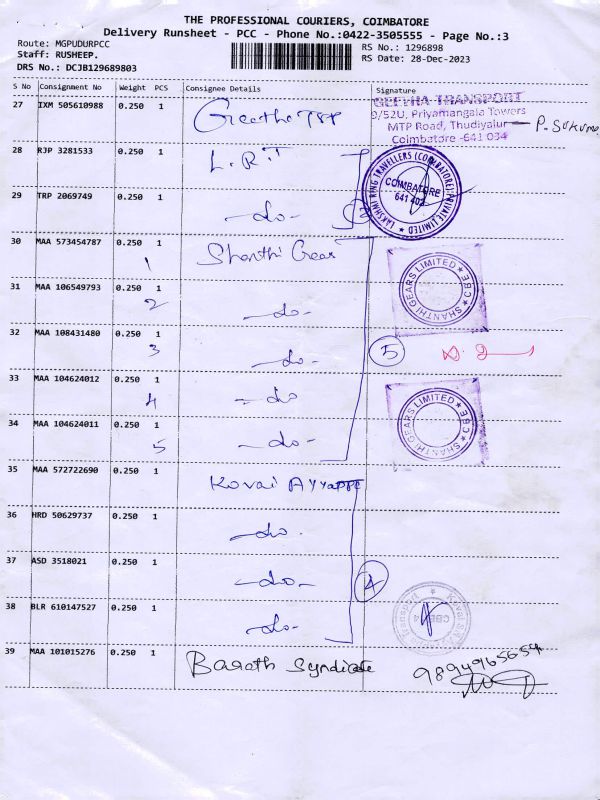 THE PROFESSIONAL COURIERS, COIMBATORE
Delivery Runsheet - PCC - Phone No.:0422-3505555 - Page No.:3
Route: MGPUDURPCC
RS No.: 1296898
Staff: RUSHEEP.
RS Date: 28-Dec-2023
DRS No.: DCJB129689803
S No Consignment No Weight PCS Consignee Details Signature
27 IXM 505610988 0.250 1 Geetha TPT
GEETHA TRANSPORT
9/52U, Priyamangala Towers
MTP Road, Thudiyalur
Coimbatore -641 034
28 RJP 3281533 0.250 1 L.R.T
LAKSHMI RING TRAVELLERS (COIMBATORE) PRIVATE LIMITED
COIMBATORE
641 402
29 TRP 2069749 0.250 1 -do- 2
30 MAA 573454787 0.250 1 Shanthi Gear
1
SHANTHI GEARS LIMITED ★ CBE ★
31 MAA 106549793 0.250 1 -do-
2
32 MAA 108431480 0.250 1 -do- 5
3
33 MAA 104624012 0.250 1 -do
4
SHANTHI GEARS LIMITED ★ CBE ★
34 MAA 104624011 0.250 1 -do-
5
35 MAA 572722690 0.250 1 Kovai Ayyappa
36 HRD 50629737 0.250 1 -do.
37 ASD 3518021 0.250 1 -do- 4
38 BLR 610147527 0.250 1 -do-
39 MAA 101015276 0.250 1 Barath Syndicate 9894965654